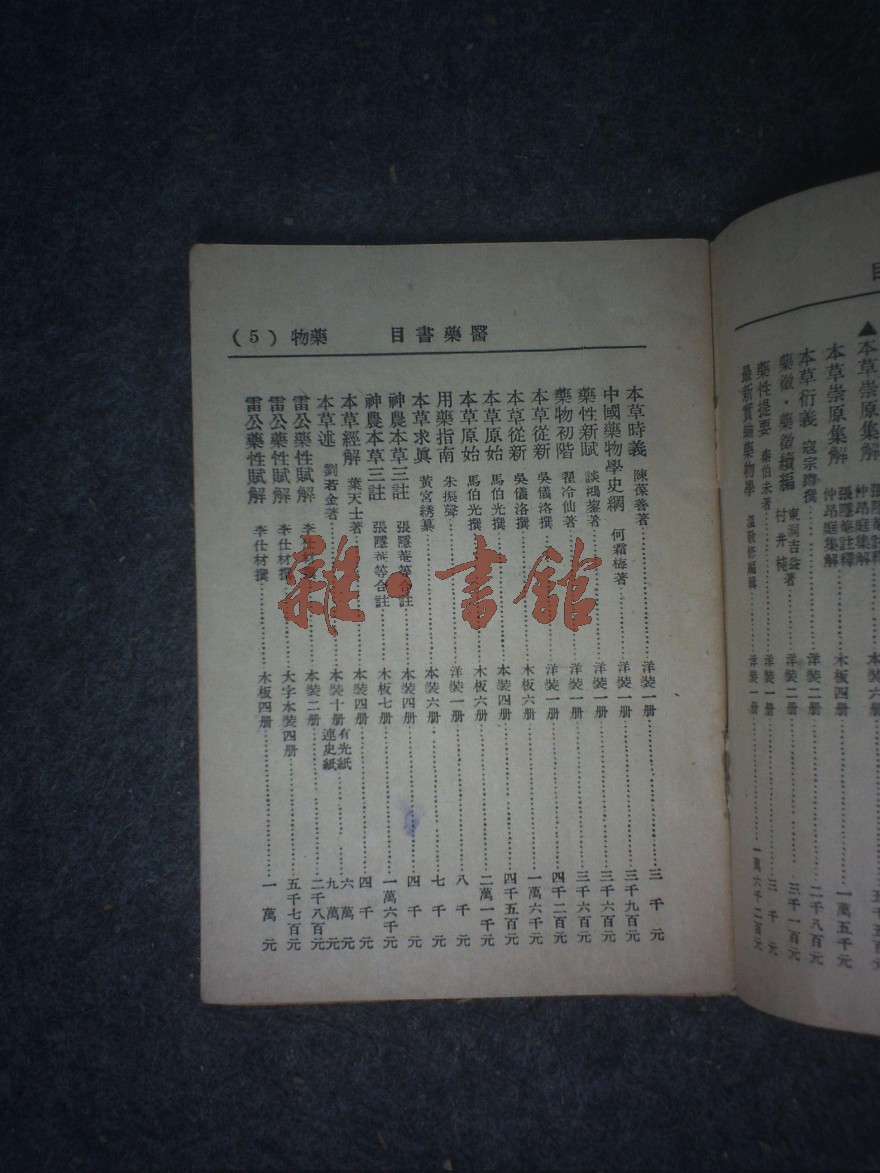 ▲本草崇原集解 仲昂庭集解
本草崇原集解 張隱菴註釋 仲昂庭集解 木板四册 一萬五千元
本草衍義 寇宗奭撰 洋裝二册 二千八百元
藥徵・藥徵續編 東洞吉益著 村井杶 洋裝二册 三千一百元
藥性提要 秦伯未著 洋裝一册 三千元
最新實驗藥物學 溫敬修編輯 洋裝一册 一萬六千二百元
醫藥書目 藥物 (5)
本草時義 陳葆善著 洋裝一册 三千元
中國藥物學史綱 何霜梅著 洋裝一册 三千九百元
藥性新賦 談鴻鋆著 洋裝一册 三千六百元
藥物初階 翟冷仙著 洋裝一册 三千六百元
本草從新 吳儀洛撰 洋裝一册 四千二百元
本草從新 吳儀洛撰 木板六册 一萬六千元
本草原始 馬伯光撰 本裝四册 四千五百元
本草原始 馬伯光撰 木板六册 二萬一千元
用藥指南 朱振聲 洋裝一册 八千元
本草求眞 黄宮綉纂 本裝六册 七千元
神農本草三註 張隱菴等合註 本裝四册 四千元
神農本草三註 張隱菴等合註 木板七册 一萬六千元
本草經解 葉天士著 本裝四册 四千元
本草述 劉若金著 本裝十册 有光紙 六萬元 連史紙 九萬元
雷公藥性賦解 李仕材著 本裝二册 二千八百元
雷公藥性賦解 李仕材撰 大字本裝四册 五千七百元
雷公藥性賦解 李仕材撰 木板四册 一萬元
雜・書館